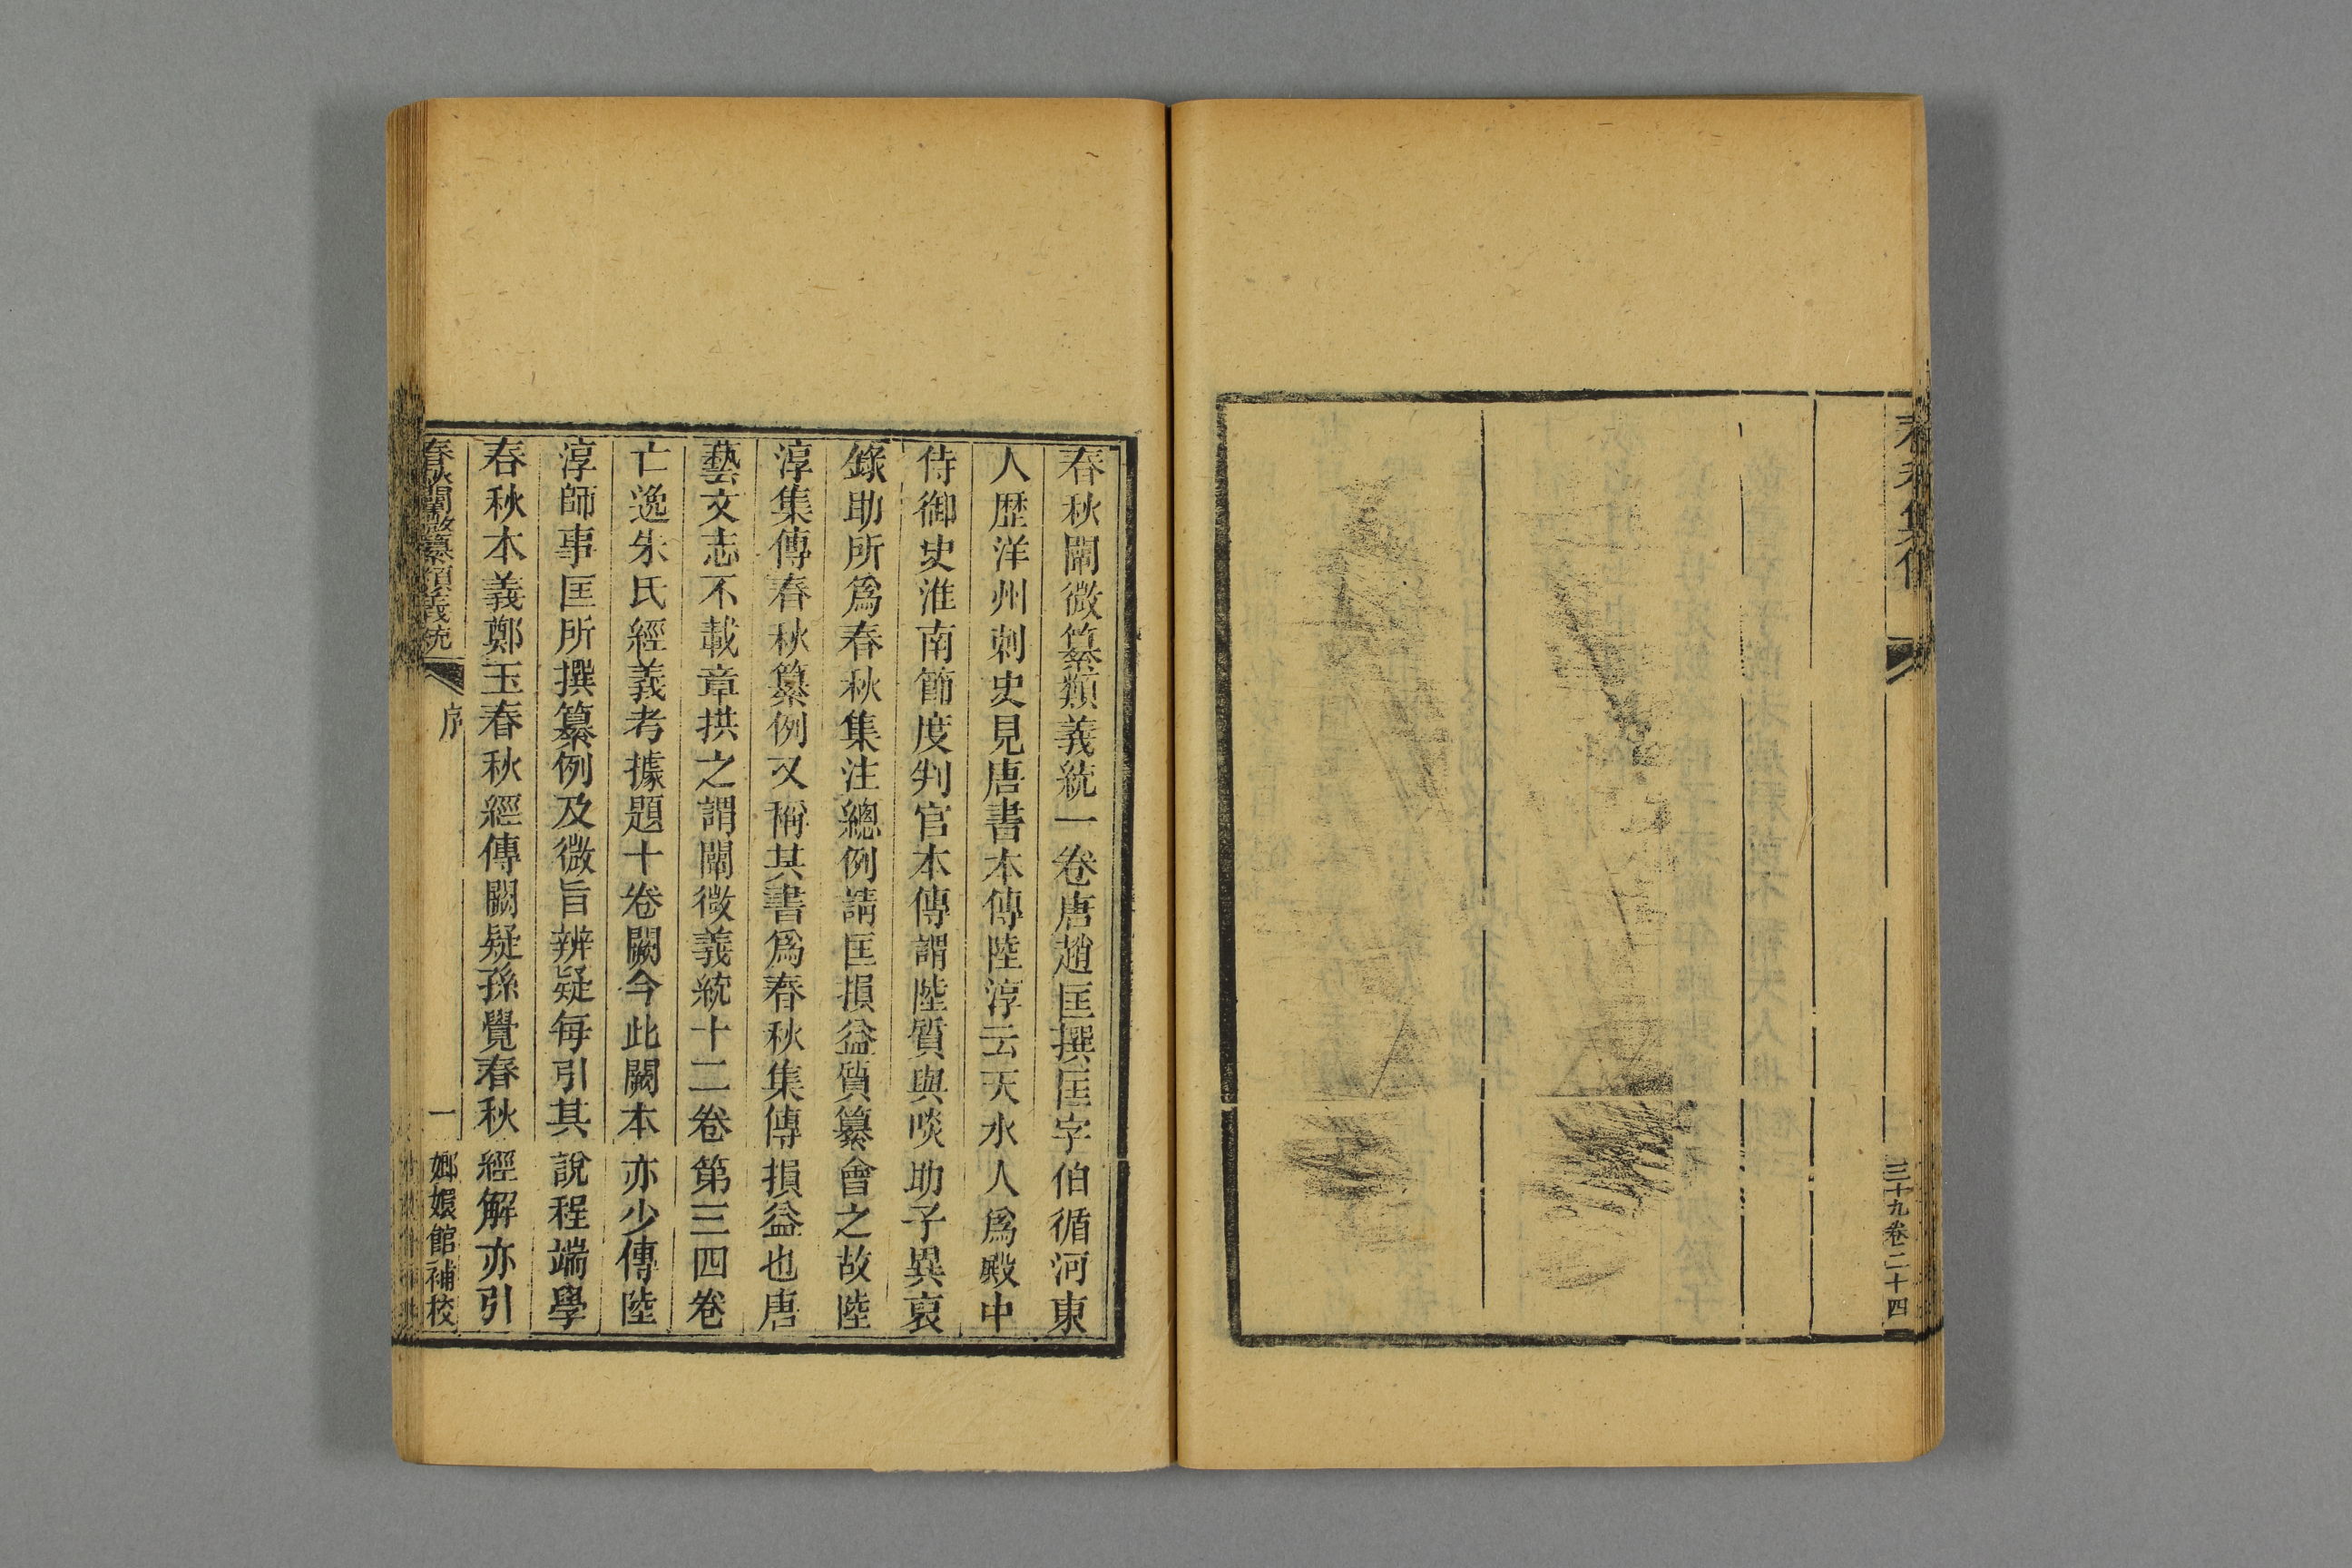 春秋集傳
三十九卷二十四
春秋闡微纂類義統一卷唐趙匡撰匡字伯循河東
人歷洋州刺史見唐書本傳陸淳云天水人爲殿中
侍御史淮南節度判官本傳謂陸質與啖助子異裒
錄助所爲春秋集注總例請匡損益質纂會之故陸
淳集傳春秋纂例又稱其書爲春秋集傳損益也唐
藝文志不載章拱之謂闡微義統十二卷第三四卷
亡逸朱氏經義考據題十卷闕今此闕本亦少傳陸
淳師事匡所撰纂例及微旨辨疑每引其說程端學
春秋本義鄭玉春秋經傳闕疑孫覺春秋經解亦引
春秋闡微纂類義統
序
一
嫏嬛館補校